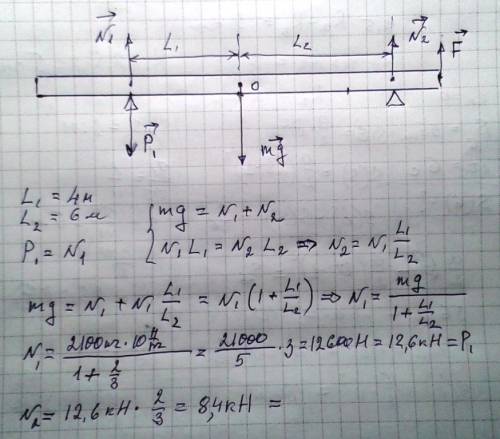 N₁ L₁ L₂ N₂ F
O
P₁ mg
L₁ = 4м
L₂ = 6м
P₁ = N₁
{ mg = N₁ + N₂
N₁ L₁ = N₂ L₂ ⇒ N₂ = N₁ L₁/L₂
mg = N₁ + N₁ L₁/L₂ = N₁ (1 + L₁/L₂) ⇒ N₁ = mg/(1 + L₁/L₂)
N₁ = 2100кг · 10 Н/кг / (1 + 2/3) = 21000/5 · 3 = 12600Н = 12,6кН = P₁
N₂ = 12,6кН · 2/3 = 8,4кН =